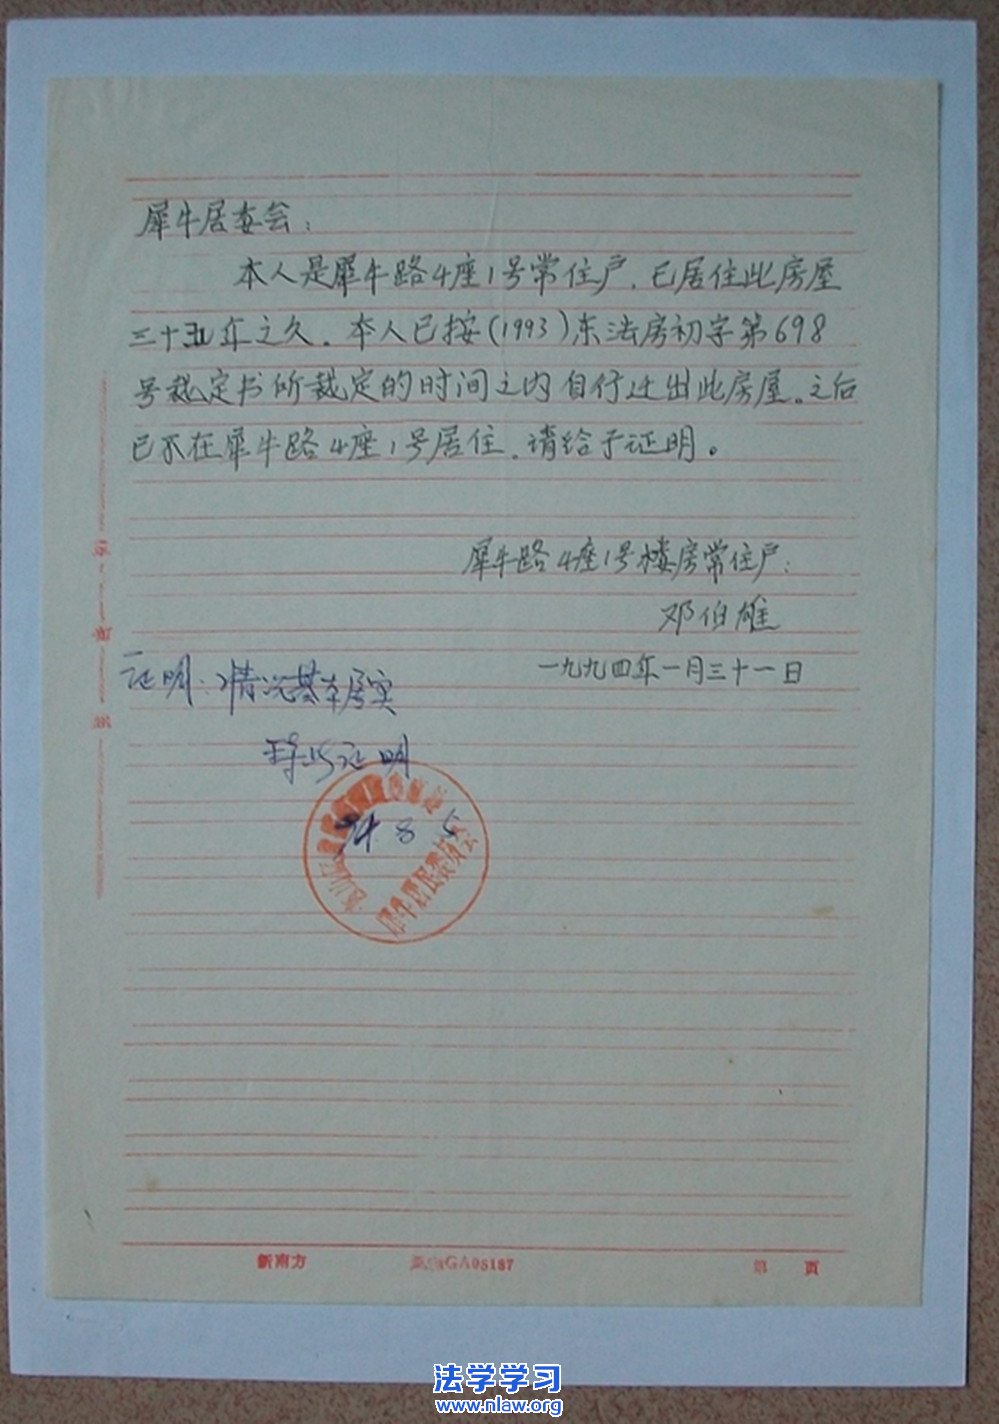 犀牛居委会：
本人是犀牛路4座1号常住户，已居住此房屋
三十五年之久。本人已按（1993）东法房初字第698
号裁定书所裁定的时间之内自行迁出此房屋。之后
已不在犀牛路4座1号居住，请给予证明。
犀牛路4座1号楼房常住户：
邓伯雄
一九九四年一月三十一日
证明：情况基本属实
特此证明
94.8.5
犀牛居民委员会
新南方
GA08187
第 页
法学学习
www.nlaw.org